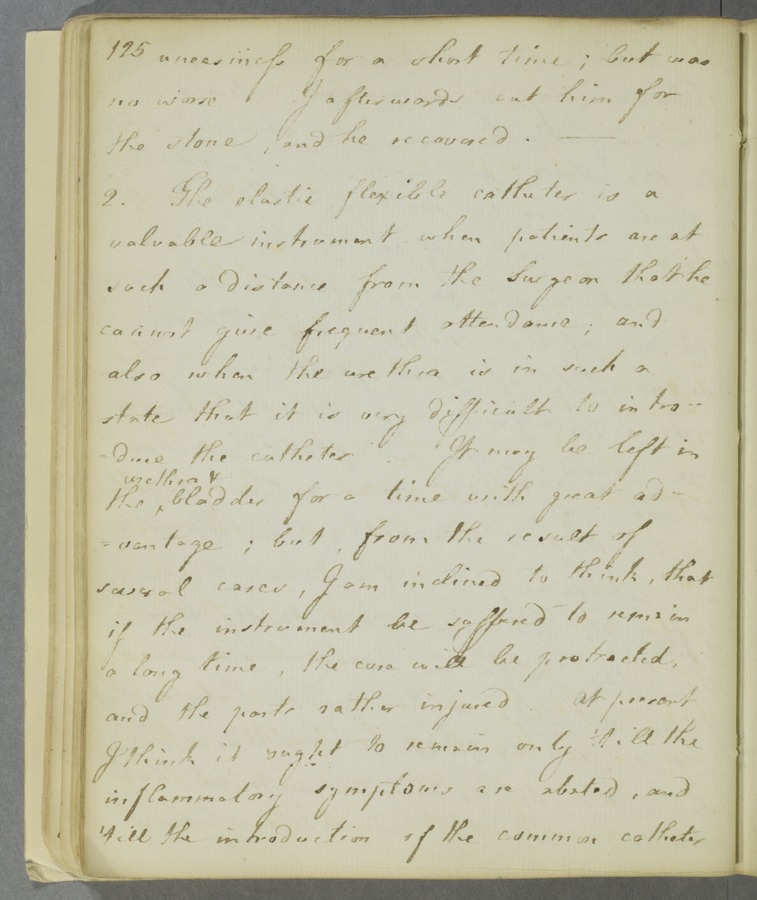 125 uneesiness for a short time; but was
no worse I afterwards cut him for
the stone, and he recovered. —
2. The elastic flexible catheter is a
valuable instrument when patients are at
such a distance from the Surgeon that he
cannot give frequent attendance; and
also when the urethra is in such a
state that it is very difficult to intro-
-duce the catheter. It may be left in
urethra &
the ‸bladder for a time with great ad-
-vantage; but, from the result of
several cases, I am inclined to think, that
if the instrument be suffered to remain
a long time, the cure will be protracted,
and the parts rather injured. At present
I think it ought to remain only 'till the
inflammatory symptoms are abated, and
'till the introduction of the common catheter